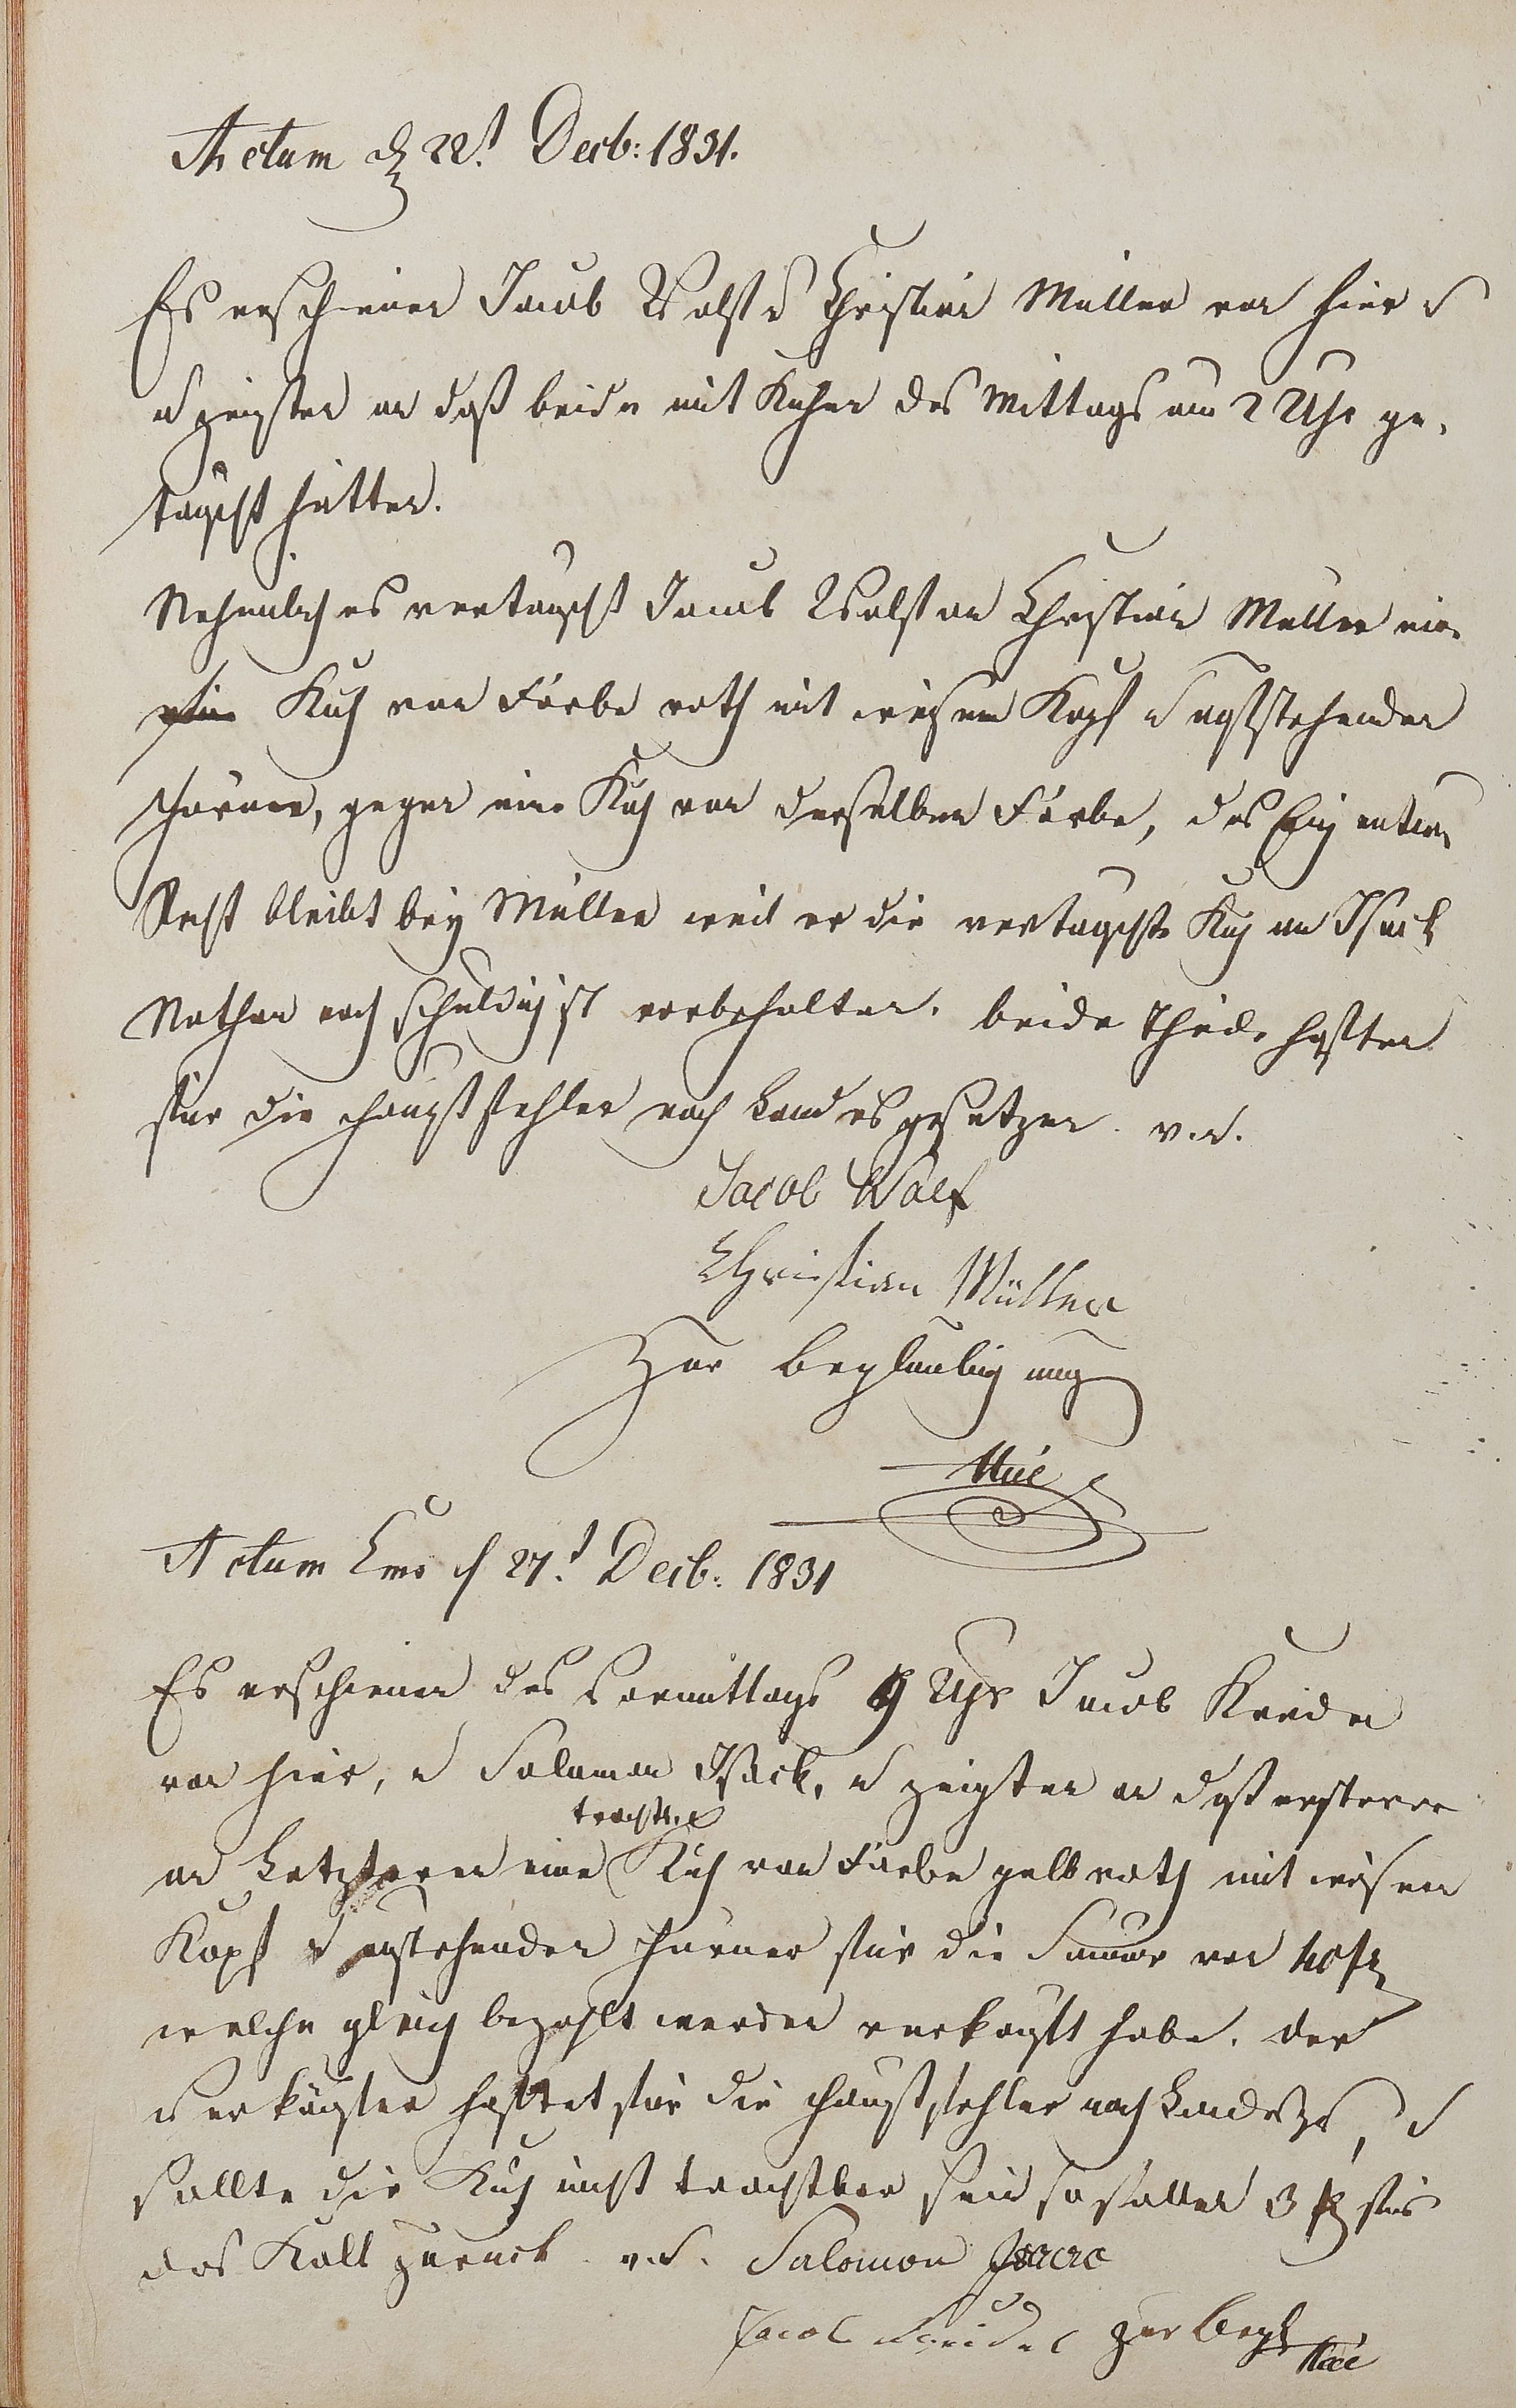 Actum d 22t Decb: 1831.
Es erschienen Jacob Wolf u Christian Müller von hier u
zeigten an daß beide mit Kühen des Mittags um 2 Uhr ge-
tauscht hätten.
Nehmlich es vertauscht Jacob Wolf an Christian Müller eine
Kuh von Farbe roth mit weisem Kopf u aufstehenden
Hörner, gegen eine Kuh von derselben Farbe, das Eigentums
Recht bleibt bey Müller weil er die vertauschte Kuh an Isack
Nathan noch schuldig ist vorbehalten. beide Theile haften
für die Hauptfehler nach Landesgesetzen. v. u.
Jacob Wolf
Christian Müller
Zur Beglaubigung
Actum Ems d 27t Decb: 1831
Es erschienen des Vormittags 9 Uhr Jacob
von hier, u Salomon Isack, u zeigten an daß ersterer
an Letzteren eine trachtbare Kuh von Farbe gelbroth mit weisem
Kopf u aufstehenden Hörner für die Summe von 40 fl
welche gleich bezahlt werden verkauft habe. der
Verkäufer haftet für die Hauptfehler nach Landsgs, u
sollte die Kuh nicht trachtbar sein so fallen 3 fl für
das Kalb zurück. v. u. Salomon Isaac
Jacob zur Begl